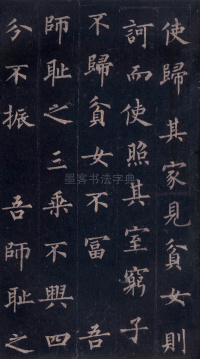 使歸其家見貧女則
訶而使照其室窮子
不歸貧女不冨吾
師耻之三乘不興四
分不振吾師耻之
墨客书法字典